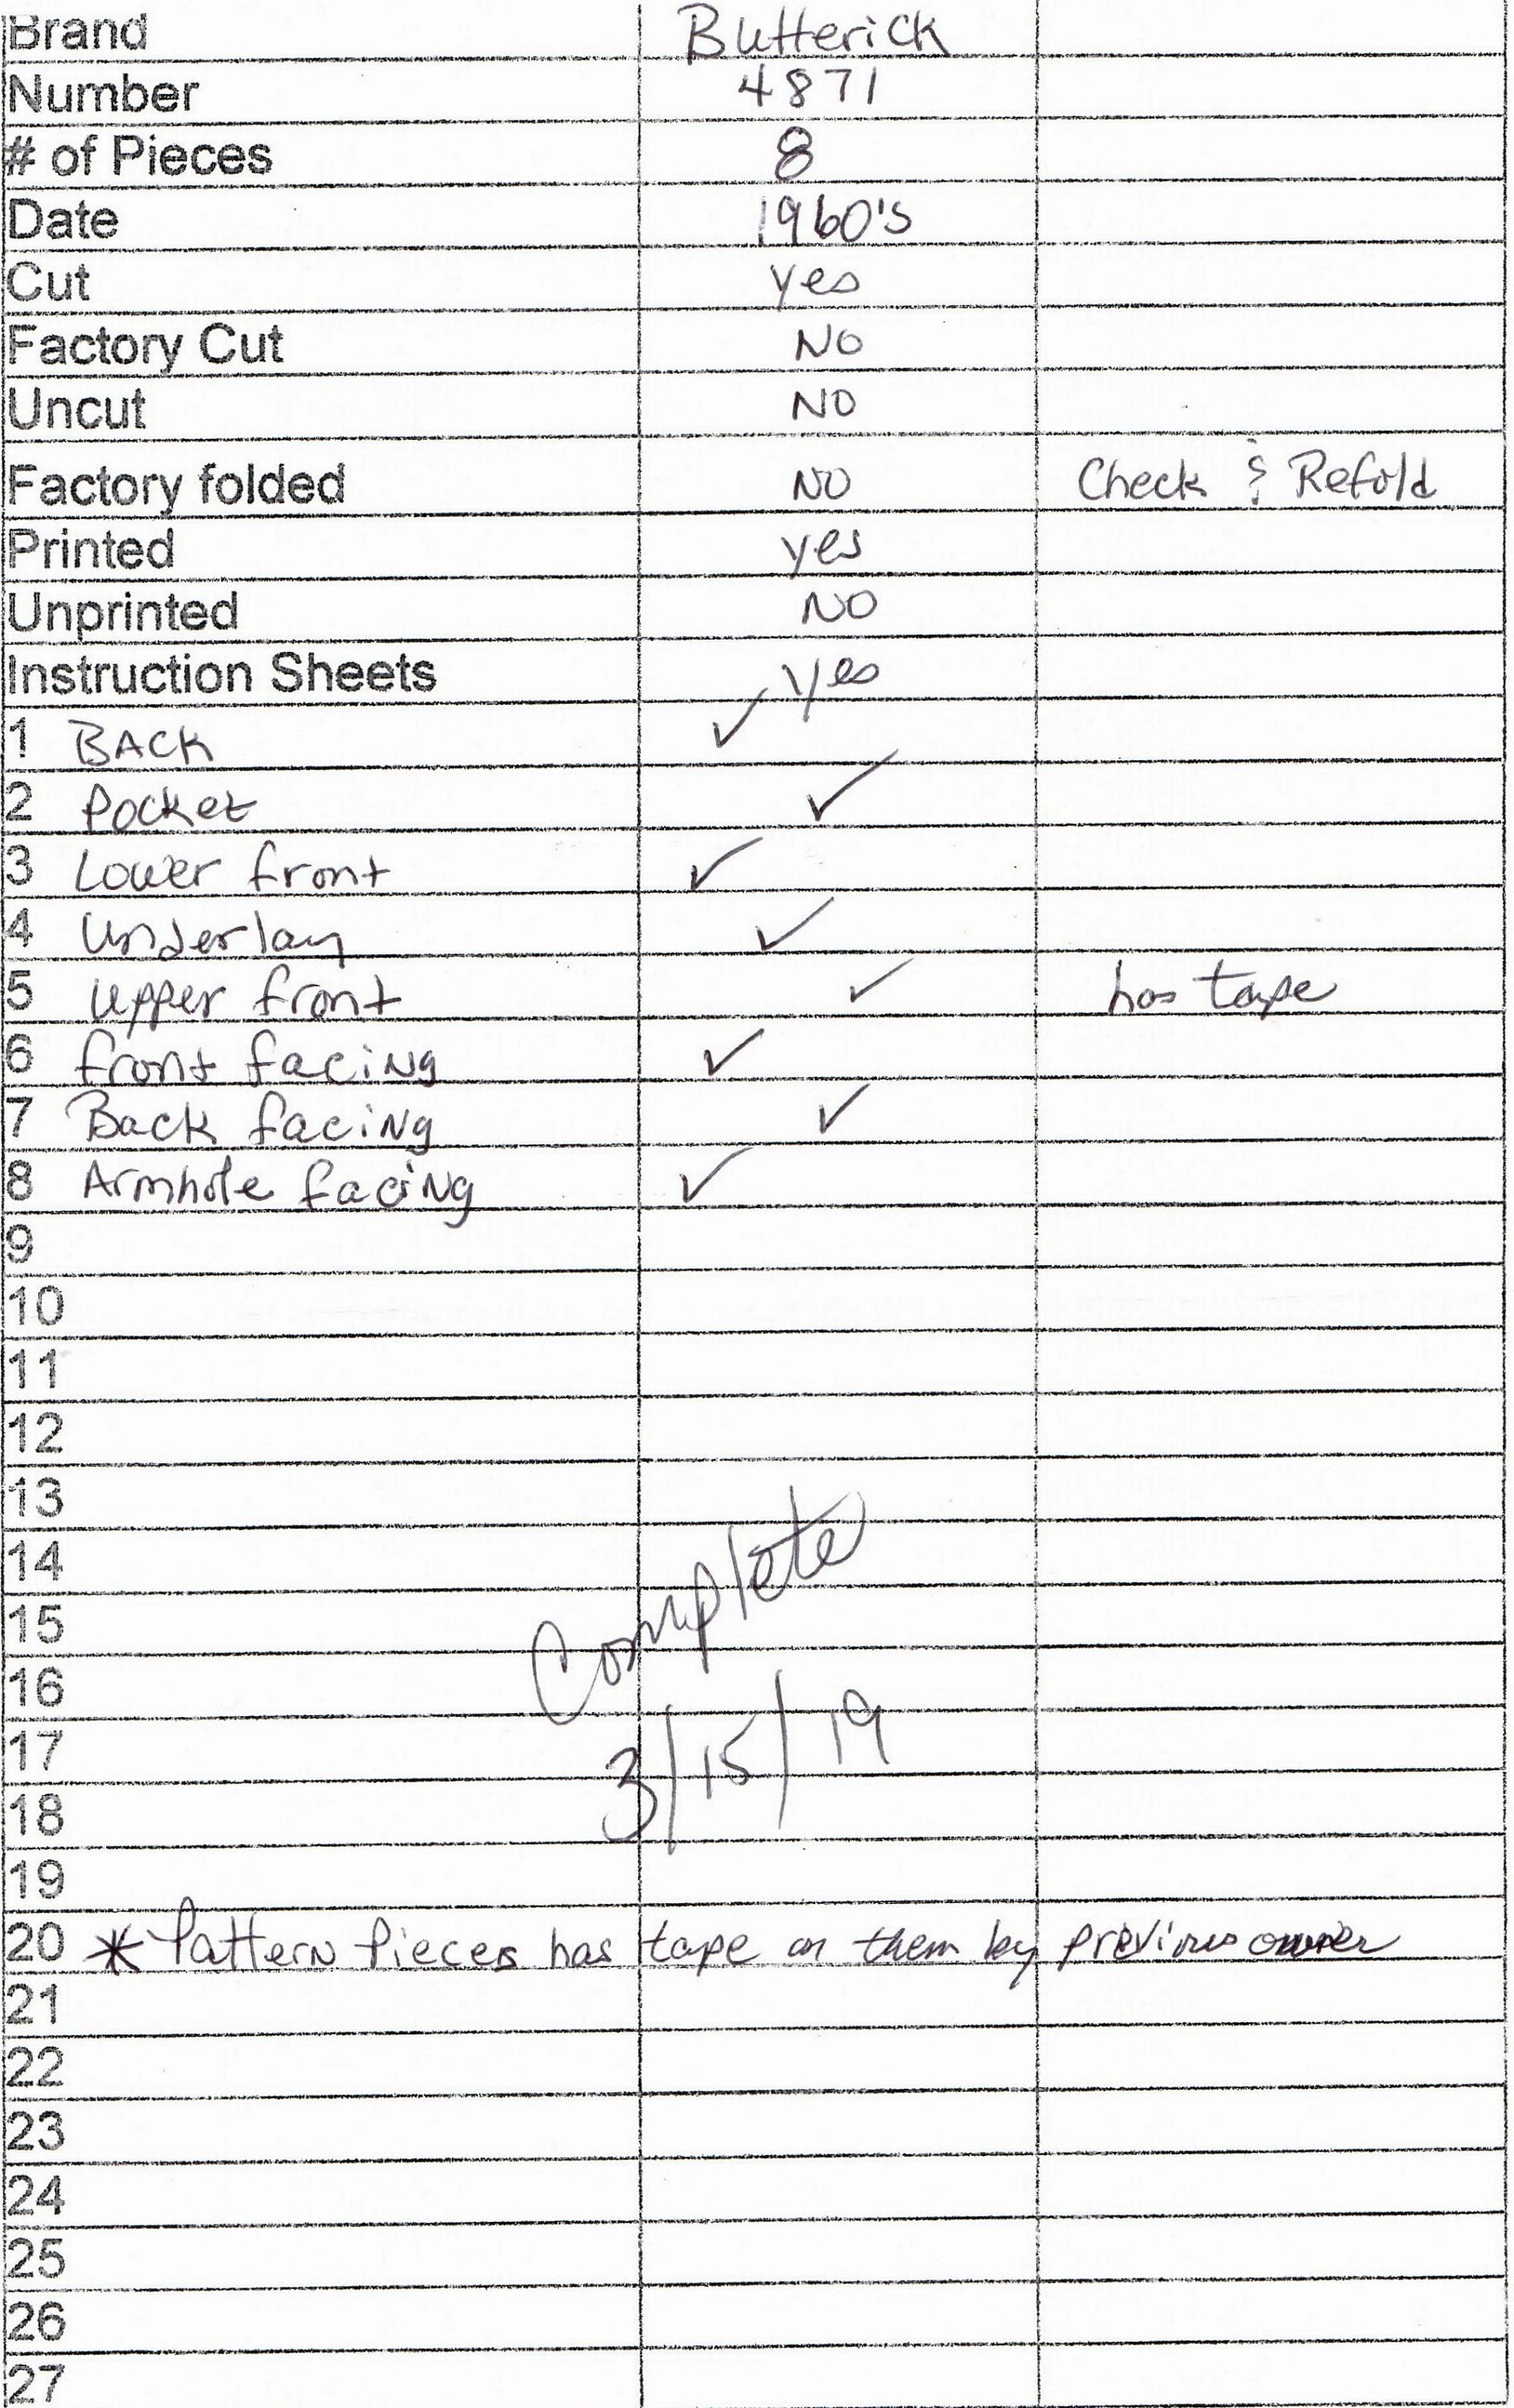 Brand Butterick
Number 4871
# of Pieces 8
Date 1960's
Cut yes
Factory Cut NO
Uncut NO
Factory folded NO Check & Refold
Printed yes
Unprinted NO
Instruction Sheets yes
1 BACK ✓
2 Pocket ✓
3 Lower front ✓
4 Underlay ✓
5 Upper front ✓ has tape
6 front facing ✓
7 Back facing ✓
8 Armhole facing ✓
9
10
11
12
13
14
Complete
15
16
17
3/15/19
18
19
20 * Pattern Pieces has tape on them by previous owner
21
22
23
24
25
26
27